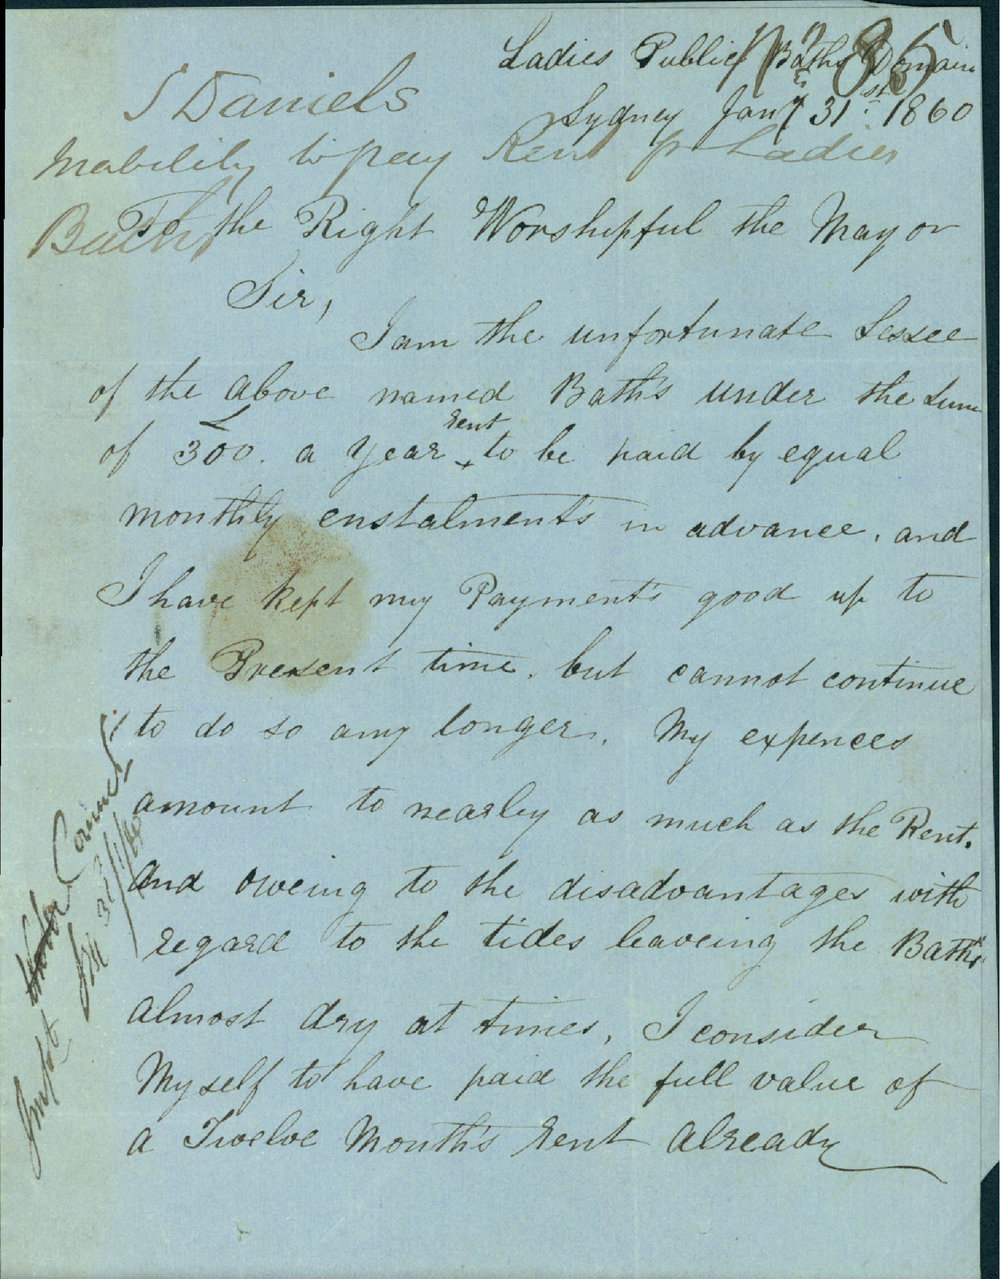 No 85
Ladies Public Baths Domain
Sydney Jany 31st 1860
S Daniels
Inability to pay Rent for Ladies
Baths
To the Right Worshipful the Mayor
Sir,
I am the unfortunate Lessee
of the above named Bath's under the Sum
of £300. a year rent to be paid by equal
monthly enstalments in advance. and
I have kept my Payments good up to
the Present time. but cannot continue
to do so any longer. My expences
amount to nearley as much as the Rent.
And oweing to the disadvantages with
regard to the tides leaveing the Baths
almost dry at times, I consider
Myself to have paid the full value of
a Twelve Month's rent already
Council
31/1/60